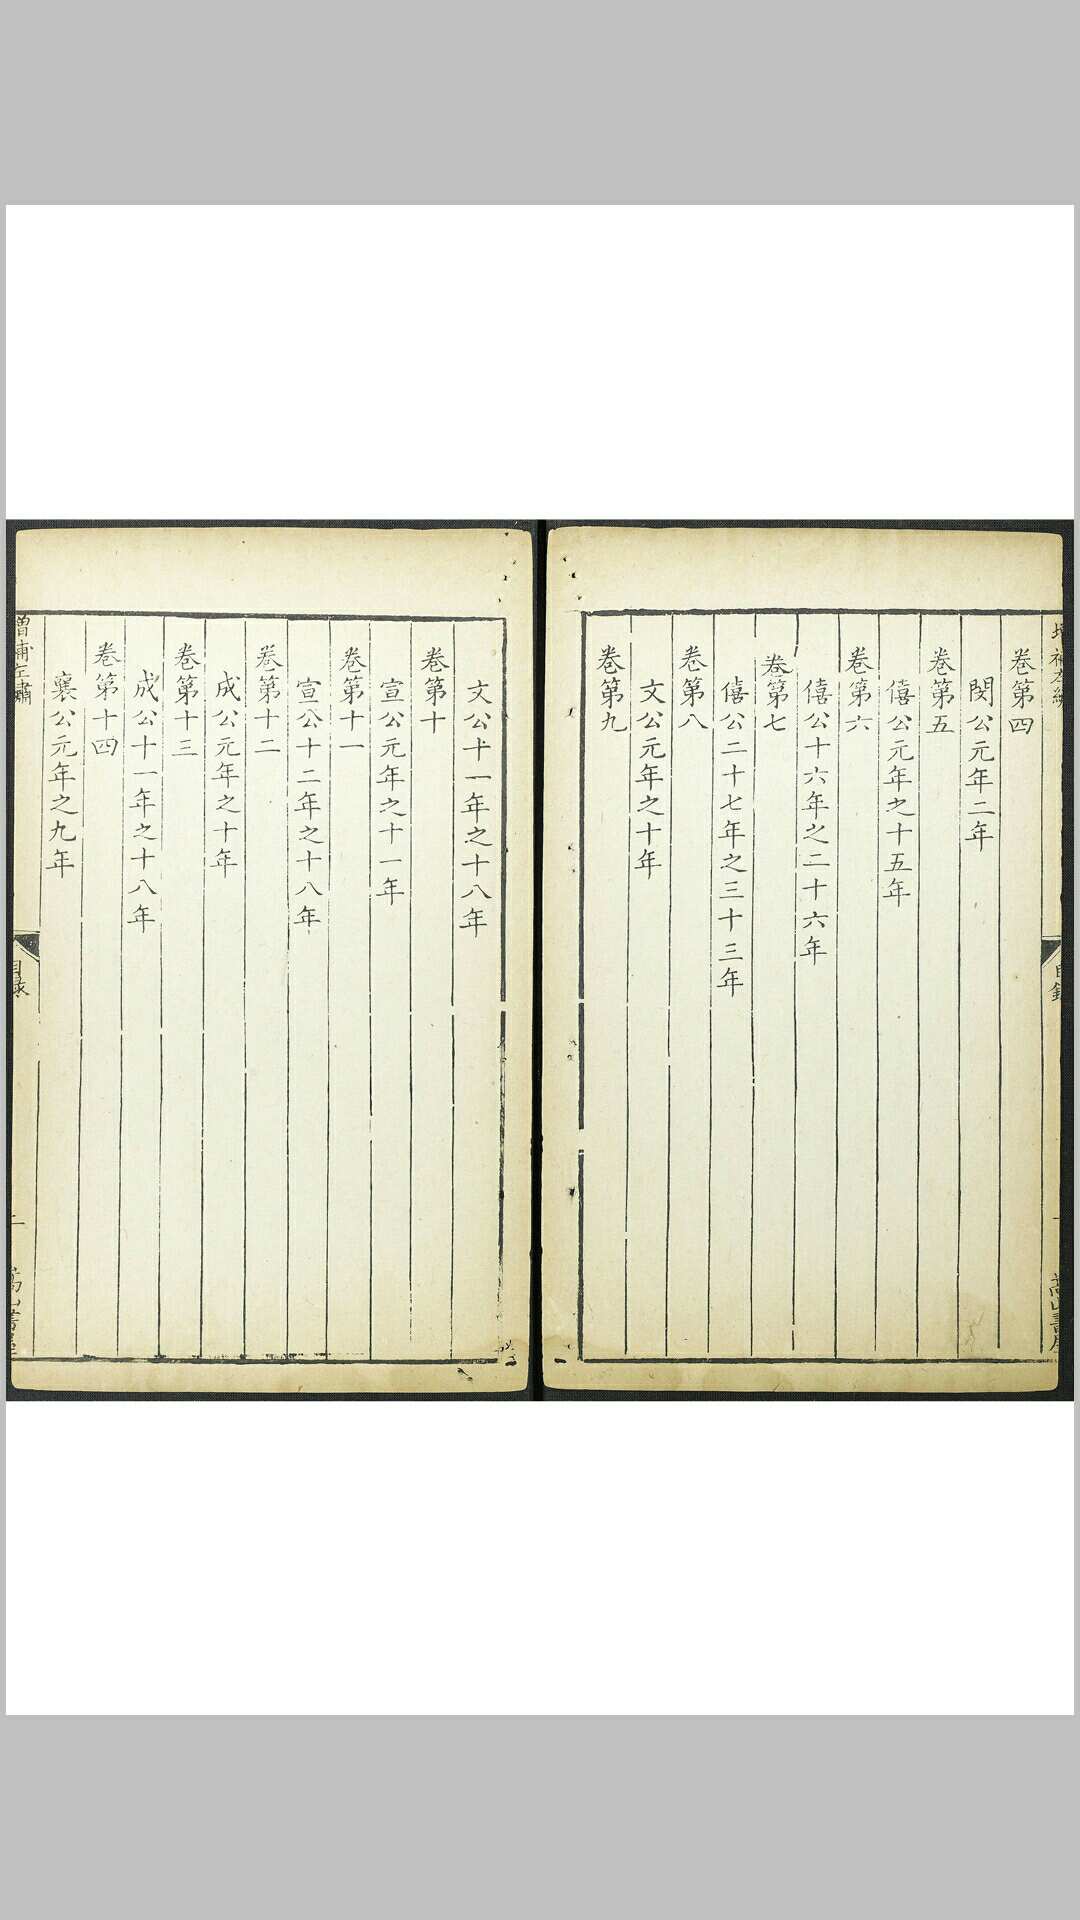 卷第四
閔公元年二年
卷第五
僖公元年之十五年
卷第六
僖公十六年之二十六年
卷第七
僖公二十七年之三十三年
卷第八
文公元年之十年
卷第九
文公十一年之十八年
卷第十
宣公元年之十一年
卷第十一
宣公十二年之十八年
卷第十二
成公元年之十年
卷第十三
成公十一年之十八年
卷第十四
襄公元年之九年
目录
二